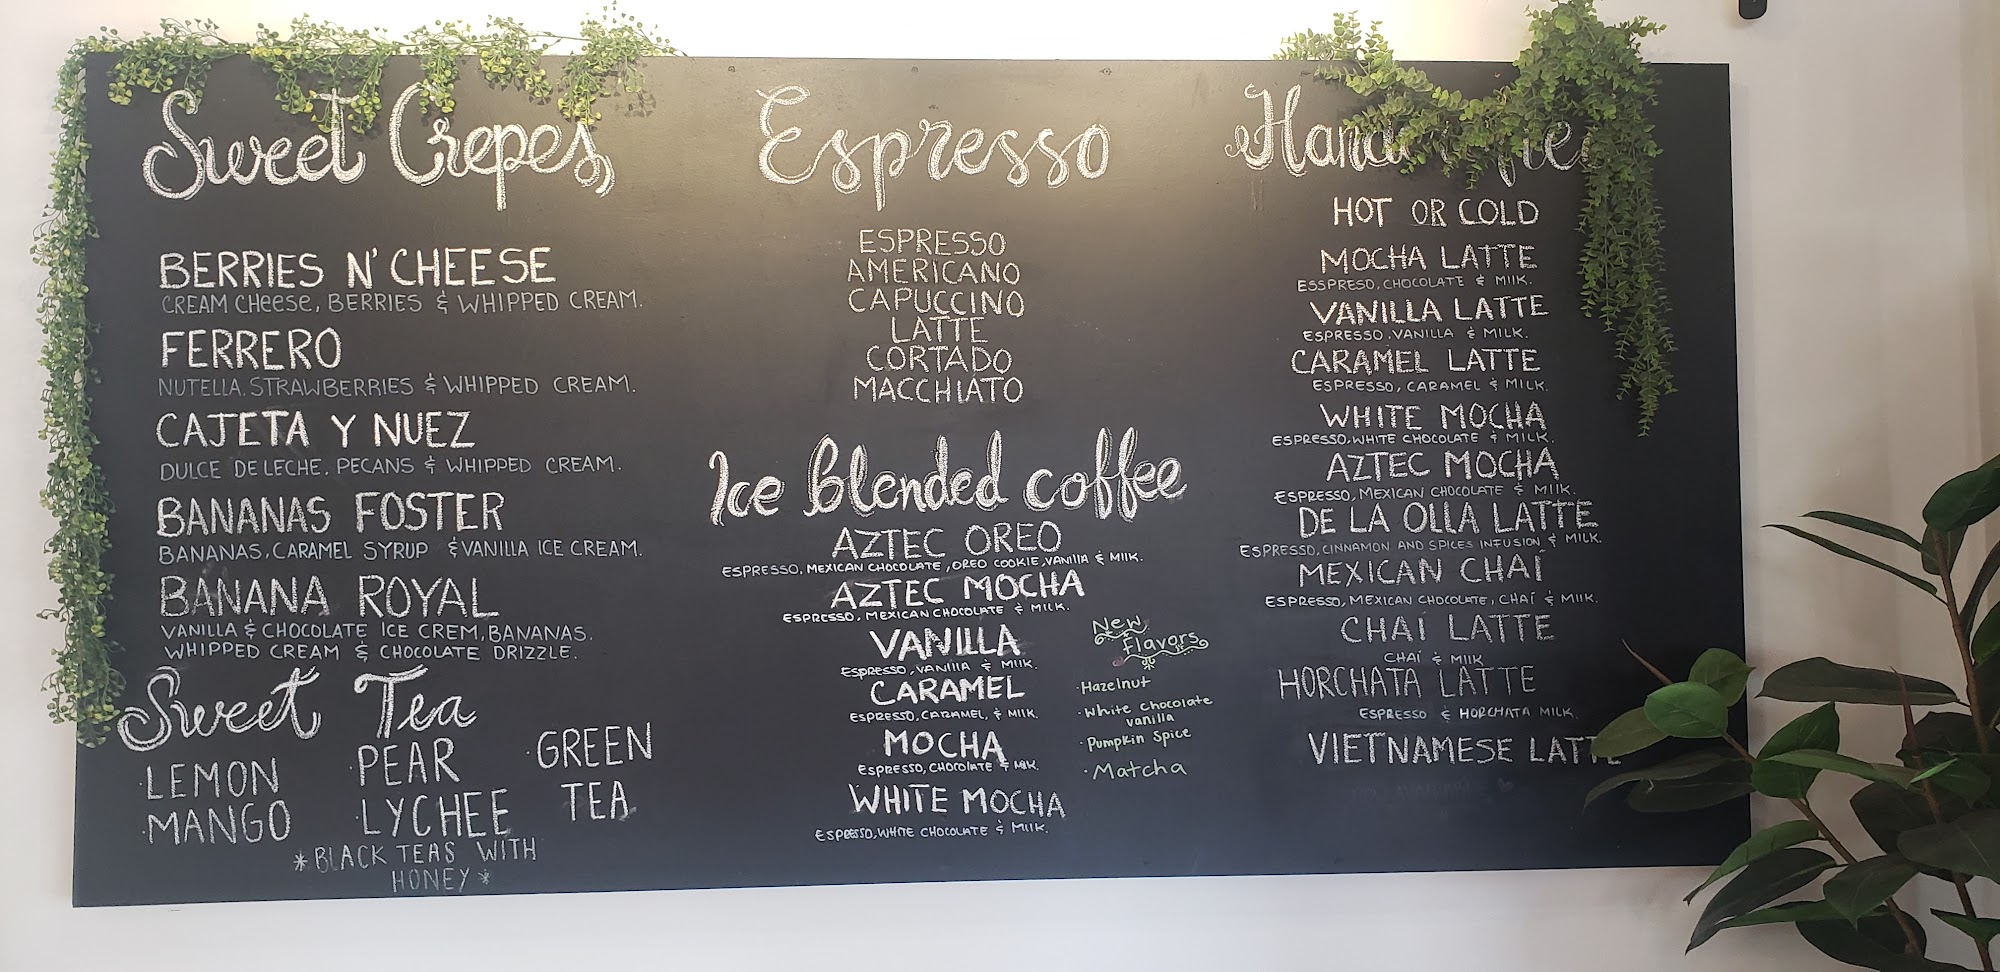 Sweet Crepes
BERRIES N' CHEESE
CREAM CHEESE, BERRIES & WHIPPED CREAM.
FERRERO
NUTELLA, STRAWBERRIES & WHIPPED CREAM.
CAJETA Y NUEZ
DULCE DE LECHE, PECANS & WHIPPED CREAM.
BANANAS FOSTER
BANANAS, CARAMEL SYRUP & VANILLA ICE CREAM.
BANANA ROYAL
VANILLA & CHOCOLATE ICE CREM, BANANAS.
WHIPPED CREAM & CHOCOLATE DRIZZLE.
Sweet Tea
· LEMON
· MANGO
· PEAR
· LYCHEE
· GREEN
TEA
* BLACK TEAS WITH
HONEY *
Espresso
ESPRESSO
AMERICANO
CAPUCCINO
LATTE
CORTADO
MACCHIATO
Ice blended coffee
AZTEC OREO
ESPRESSO, MEXICAN CHOCOLATE, OREO COOKIE, VANILLA & MILK.
AZTEC MOCHA
ESPRESSO, MEXICAN CHOCOLATE & MILK.
VANILLA
ESPRESSO, VANILLA & MILK.
CARAMEL
ESPRESSO, CARAMEL, & MILK.
MOCHA
ESPRESSO, CHOCOLATE & MILK.
WHITE MOCHA
ESPRESSO, WHITE CHOCOLATE & MILK.
New
Flavors
· Hazelnut
· White chocolate
vanilla
· Pumpkin Spice
· Matcha
HOT OR COLD
MOCHA LATTE
ESSPRESO, CHOCOLATE & MILK.
VANILLA LATTE
ESPRESSO, VANILLA & MILK.
CARAMEL LATTE
ESPRESSO, CARAMEL & MILK.
WHITE MOCHA
ESPRESSO, WHITE CHOCOLATE & MILK.
AZTEC MOCHA
ESPRESSO, MEXICAN CHOCOLATE & MILK.
DE LA OLLA LATTE
ESPRESSO, CINNAMON AND SPICES INFUSION & MILK.
MEXICAN CHAÍ
ESPRESSO, MEXICAN CHOCOLATE, CHAÍ & MILK.
CHAÍ LATTE
CHAÍ & MILK
HORCHATA LATTE
ESPRESSO & HORCHATA MILK.
VIETNAMESE LATTE